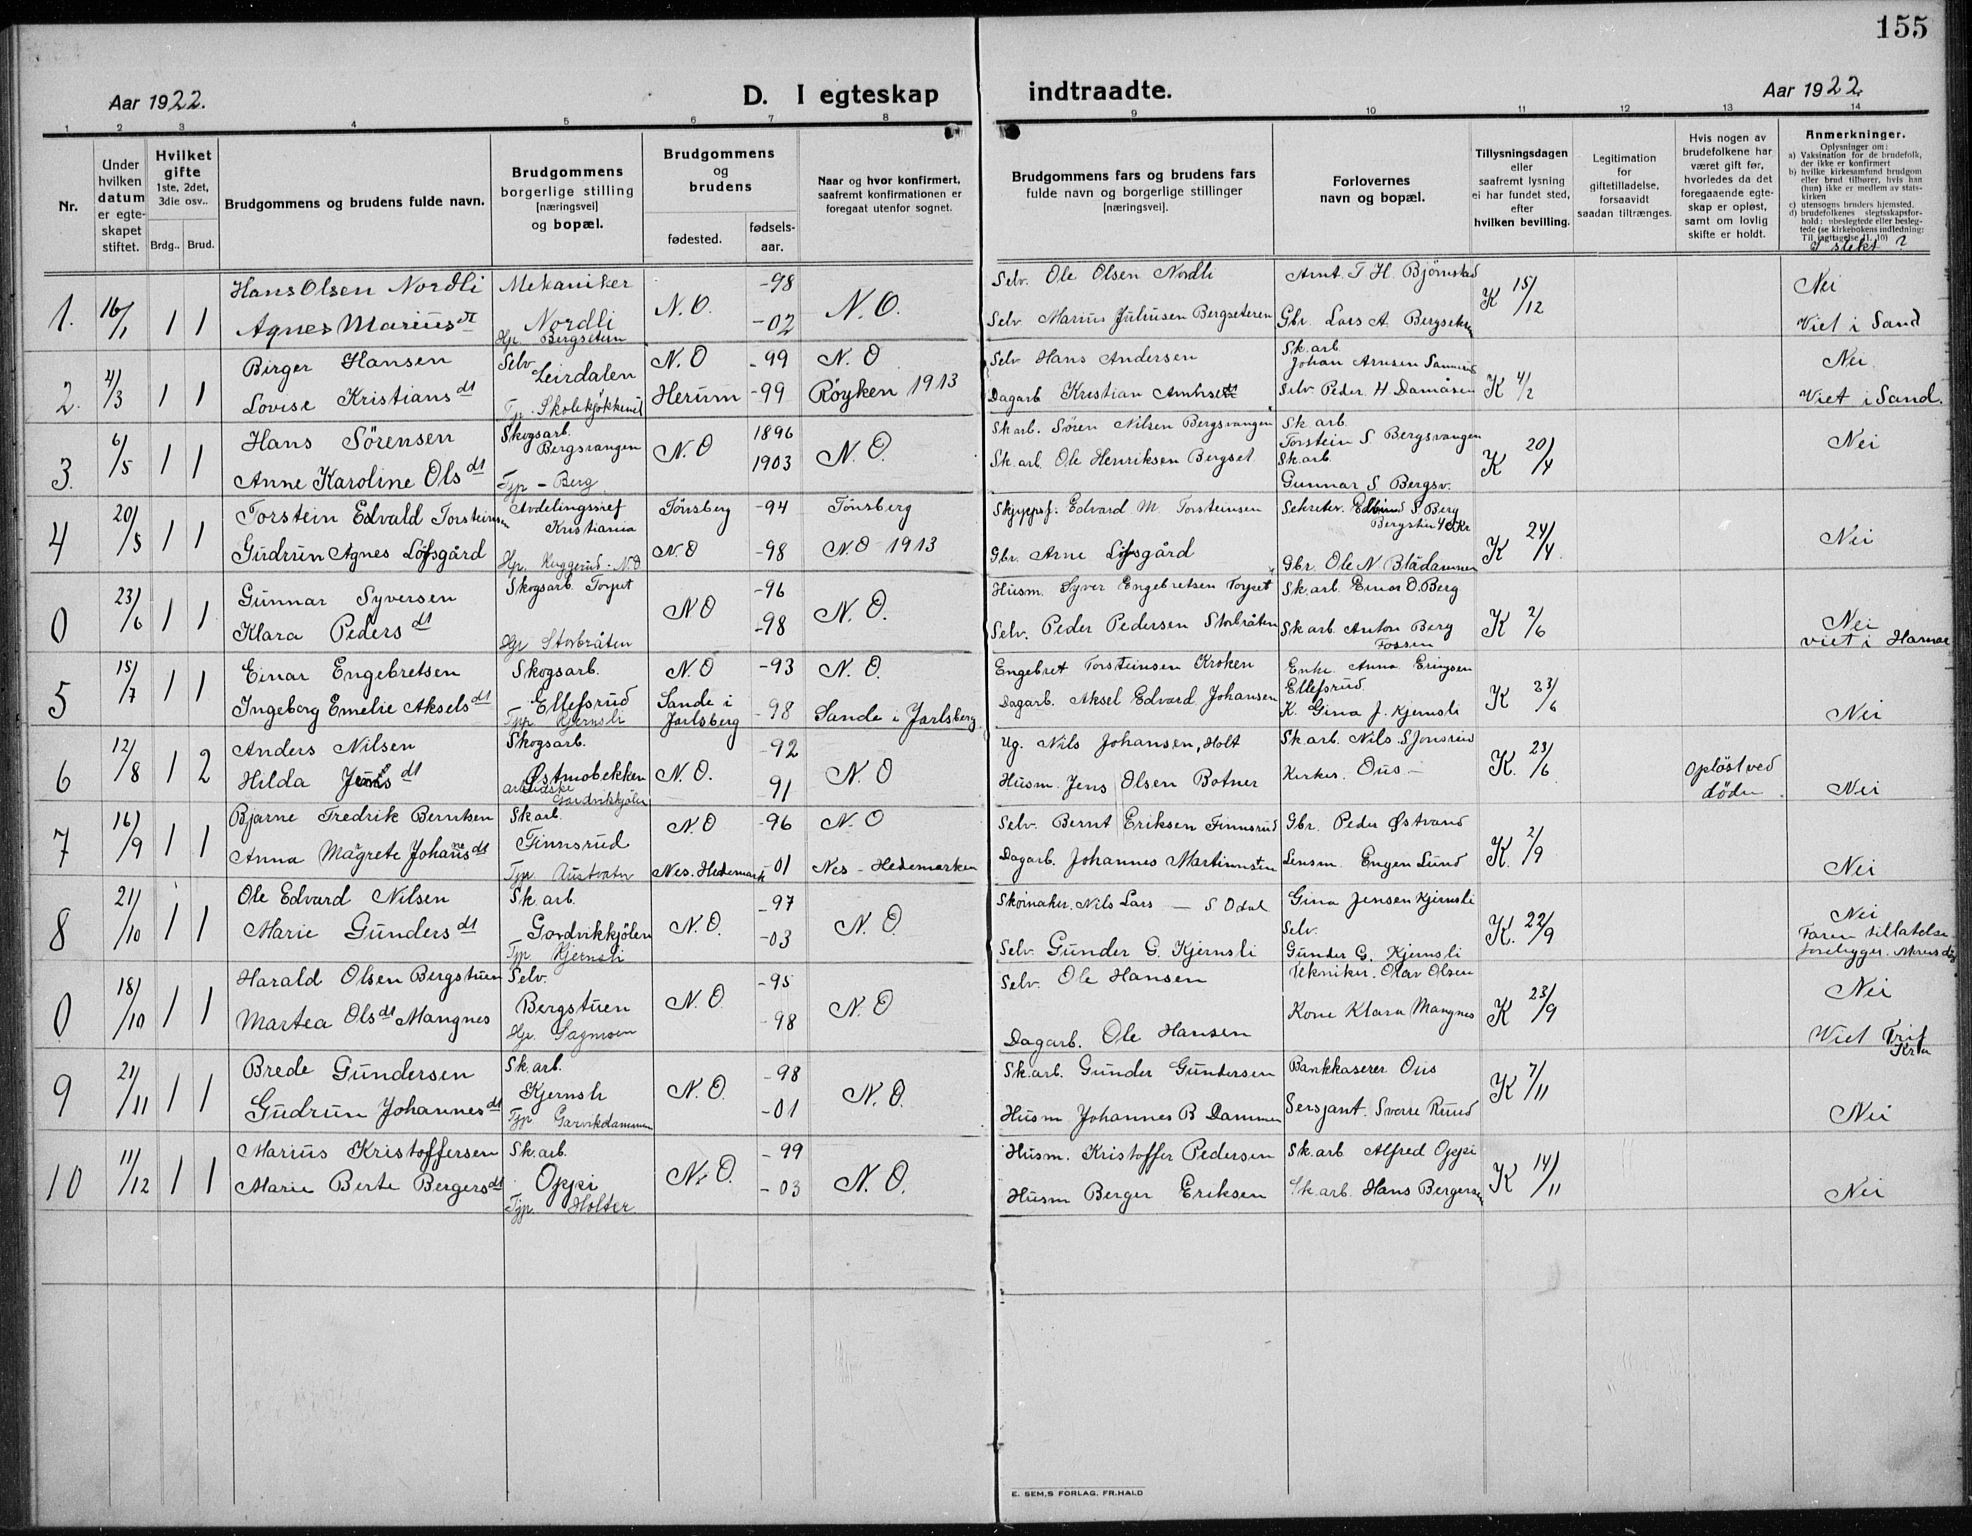 155
Aar 1922.
D. I egteskap
indtraadte.
Aar 1922.
1 2 3 4 5 6 7 8 9 10 11 12 13 14
Nr.
Under
hvilken
datum
er egte-
skapet
stiftet.
Hvilket
gifte
1ste, 2det,
3die osv..
Brdg.. Brud.
Brudgommens og brudens fulde navn.
Brudgommens
borgerlige stilling
[næringsvei]
og bopæl.
Brudgommens
og
brudens
fødested.
fødsels-
aar.
Naar og hvor konfirmert,
saafremt konfirmationen er
foregaat utenfor sognet.
Brudgommens fars og brudens fars
fulde navn og borgerlige stillinger
[næringsvei].
Forlovernes
navn og bopæl.
Tillysningsdagen
eller
saafremt lysning
ei har fundet sted,
efter
hvilken bevilling.
Legitimation
for
giftetilladelse,
forsaavidt
saadan tiltrænges.
Hvis nogen av
brudefolkene har
været gift før,
hvorledes da det
foregaaende egte-
skap er opløst,
samt om lovlig
skifte er holdt.
Anmerkninger.
Oplysninger om:
a) Vaksination for de brudefolk,
der ikke er konfirmert
b) hvilke kirkesamfund brudgom
eller brud tilhører, hvis han
(hun) ikke er medlem av stats-
kirken
c) utensogns bruders hjemsted.
d) brudefolkenes slegtsskapsfor-
hold: ubeslegtede eller besleg-
tede (se kirkebokens indledning:
Til iagttagelse 11, 10)
I slekt ?
1. 16/1 1 1
Hans Olsen Nordli
Agnes Mariusdt
Mekaniker
Nordli
Hp. Bergsetern
N.O. -98 -02 N.O.
Selv. Ole Olsen Nordli
Selv Marius Juliusen Bergseteren
Arnt T H. Bjørnstad
Gbr. Lars A. Bergseteren
K 15/12
Nei
Viet i Sand
2. 4/3 1 1
Birger Hansen
Lovise Kristiansdt
Selv
Leirdalen
Tp. Skolekjøkkenet
N.O -99 N.O
Herum -99 Røyken 1913
Selv Hans Andersen
Dagarb Kristian
Sk.arb.
Johan Arnsen
Selv Peder H Damåsen
K 4/2
Nei
Viet i Sand.
3. 6/5 1 1
Hans Sørensen
Anne Karoline Olsdt
Skogsarb.
Bergsvangen
Tjp - Berg
N.O 1896 1903 N.O.
Sk arb. Søren Nilsen Bergsvangen
Sk.arb. Ole Henriksen Bergset
Sk arb.
Torstein S Bergsvangen
Sk.arb.
Gunnar S. Bergsv.
K 20/4
Nei
4 20/5 1 1
Torstein Edvald Torsteinsen
Gudrun Agnes Løfsgård
Avdelingssjef
Kristiania
Hp. Ruggerud - NO
Tønsberg -94 Tønsberg
N.O -98 N.O - 1913
Skjppsf. Edvard M Torsteinsen
Gbr. Arne Løfsgård
Sekretær. S Berg
Gbr. Ole N Blådammen
K 24/4.
Nei
0 23/6 1 1
Gunnar Syversen
Klara Pedersdt
Skogsarb Torpet
Hp Storbråten
N O -96 -98 N.O.
Husm. Syver Engebretsen Torpet
Selv. Peder Pedersen Storbråten
Sk.arb. Einar O. Berg
Sk arb. Anton Berg
Fossen
K 2/6
Nei
viet i Hamar
5 15/7 1 1
Einar Engebretsen
Ingeborg Emelie Akselsdt
Skogsarb.
Ellefsrud
Tjp. Kjernsli
N.O -93 N.O.
Sande i
Jarlsberg -98 Sande i Jarlsberg
Engebret Torsteinsen Kroken
Dagarb. Aksel Edvard Johansen
Enke. Anna Eringsen
Ellefsrud.
K. Gina J. Kjernsli
K 23/6
Nei
6 12/8 1 2
Anders Nilsen
Hilda Jensdt
Skogsarb.
Østmobekken
arbeidske
Gardvikkjølen
N.O. -92 91 N.O
Ug. Nils Johansen, Holt
Husm. Jens Olsen Botner
Sk arb. Nils
Kirkes. Ous -
K. 23/6
Opløst ved
døden.
Nei
7 16/9 1 1
Bjarne Fredrik Berntsen
Anna Magrete Johannesdt
Sk.arb.
Finnsrud
Tjp.
N.O -96 N.O
Nes. Hedemark -01 Nes - Hedemarken
Selv. Bernt Eriksen Finnsrud
Dagarb. Johannes Martinnsten
Gbr. Peder Østvand
Lensm. Engen Lund
K. 2/9
Nei
8 21/10 1 1
Ole Edvard Nilsen
Marie Gundersdt
Sk.arb.
Gardvikkjølen
Tjp Kjernsli
N.O. -97 -03 N.O.
Skomaker. Nils Lars — S Odal
Selv. Gunder G. Kjernsli
Gina Jensen Kjernsli
Selv.
Gunder G. Kjernsli
K. 22/9
Nei
Faren tillatelse
foreligger.
0 18/10 1 1
Harald Olsen Bergstuen
Martea Olsdt Mangnes
Selv.
Bergstuen
Hp. Sagmoen
N.O. -95 -98 N.O
Selv. Ole Hansen
Dagarb. Ole Hansen
Tekniker. Olav Olsen
Kone Klara Mangnes
K 23/9
Nei
Viet Trif
Kra
9 21/11 1 1
Brede Gundersen
Gudrun Johannesdt
Sk.arb.
Kjernsli
Tjp Garvikdammen
N.O. -98 -01 N.O.
Sk.arb. Gunder Gundersen
Husm Johannes B Dammen
Bankkaserer Ous
Sersjant. Sverre Ruud
K 7/11
Nei
10 11/12 1 1
Marius Kristoffersen
Marie Berte Bergersdt
Sk.arb.
Oppi
Tjp. Holter
N.O. -99 -03 N.O.
Husm. Kristoffer Pedersen
Husm Berger Eriksen
Sk.arb Alfred Oppi
Sk.arb. Hans Bergersen
K 14/11
Nei
E. SEM,S FORLAG, FR.HALD